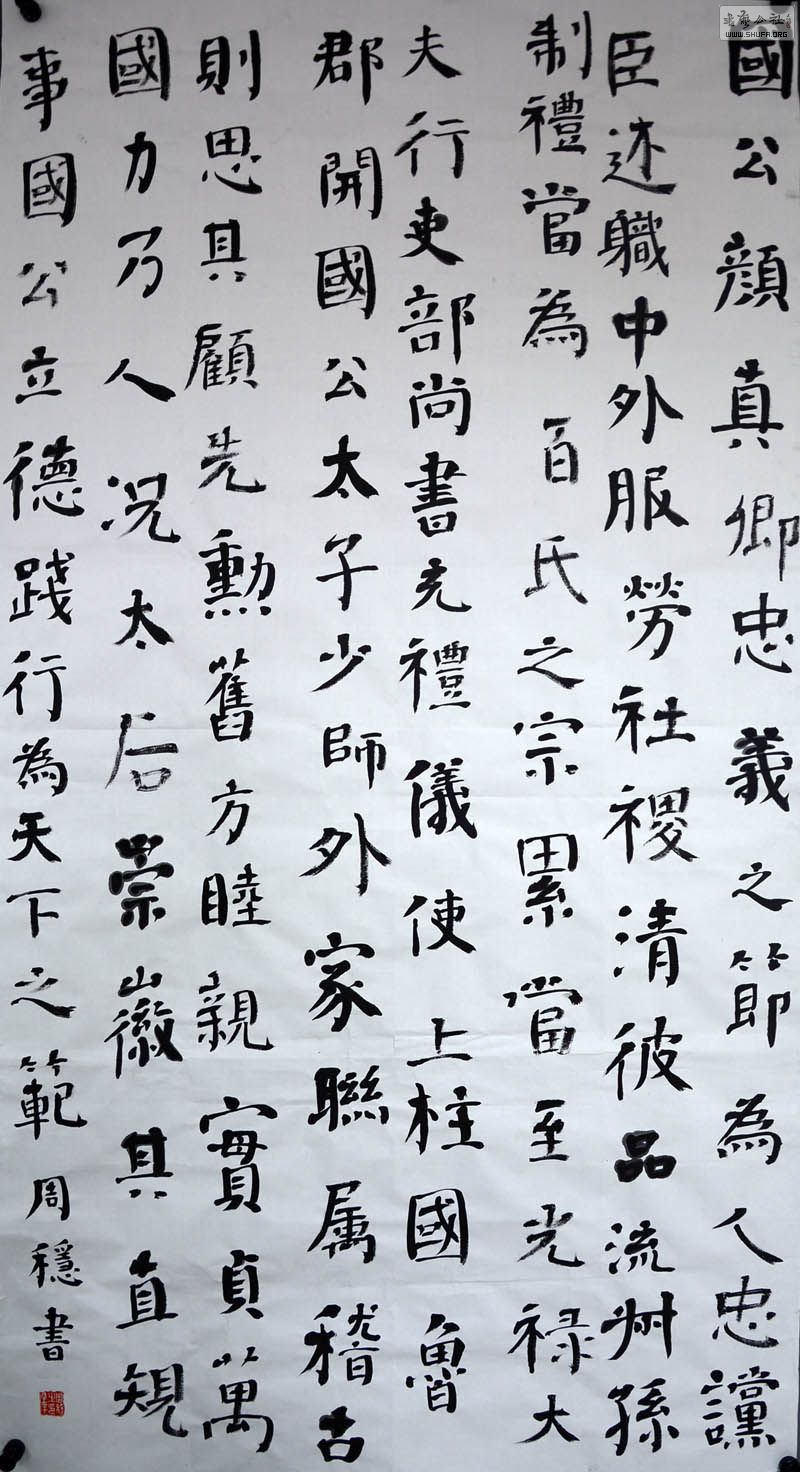 國公顏真卿忠義之節為人忠讜
臣述職中外服勞社稷清彼品流州孫
制禮當為百氏之宗累當至光禄大
夫行吏部尚書充禮儀使上柱國魯
郡開國公太子少師外家聯属稽古
則思其顧先勳舊方睦親實貞萬
國力乃人況太后崇徽其直規
事國公立德踐行為天下之範周穩書
書法公社
WWW.SHUFA.ORG